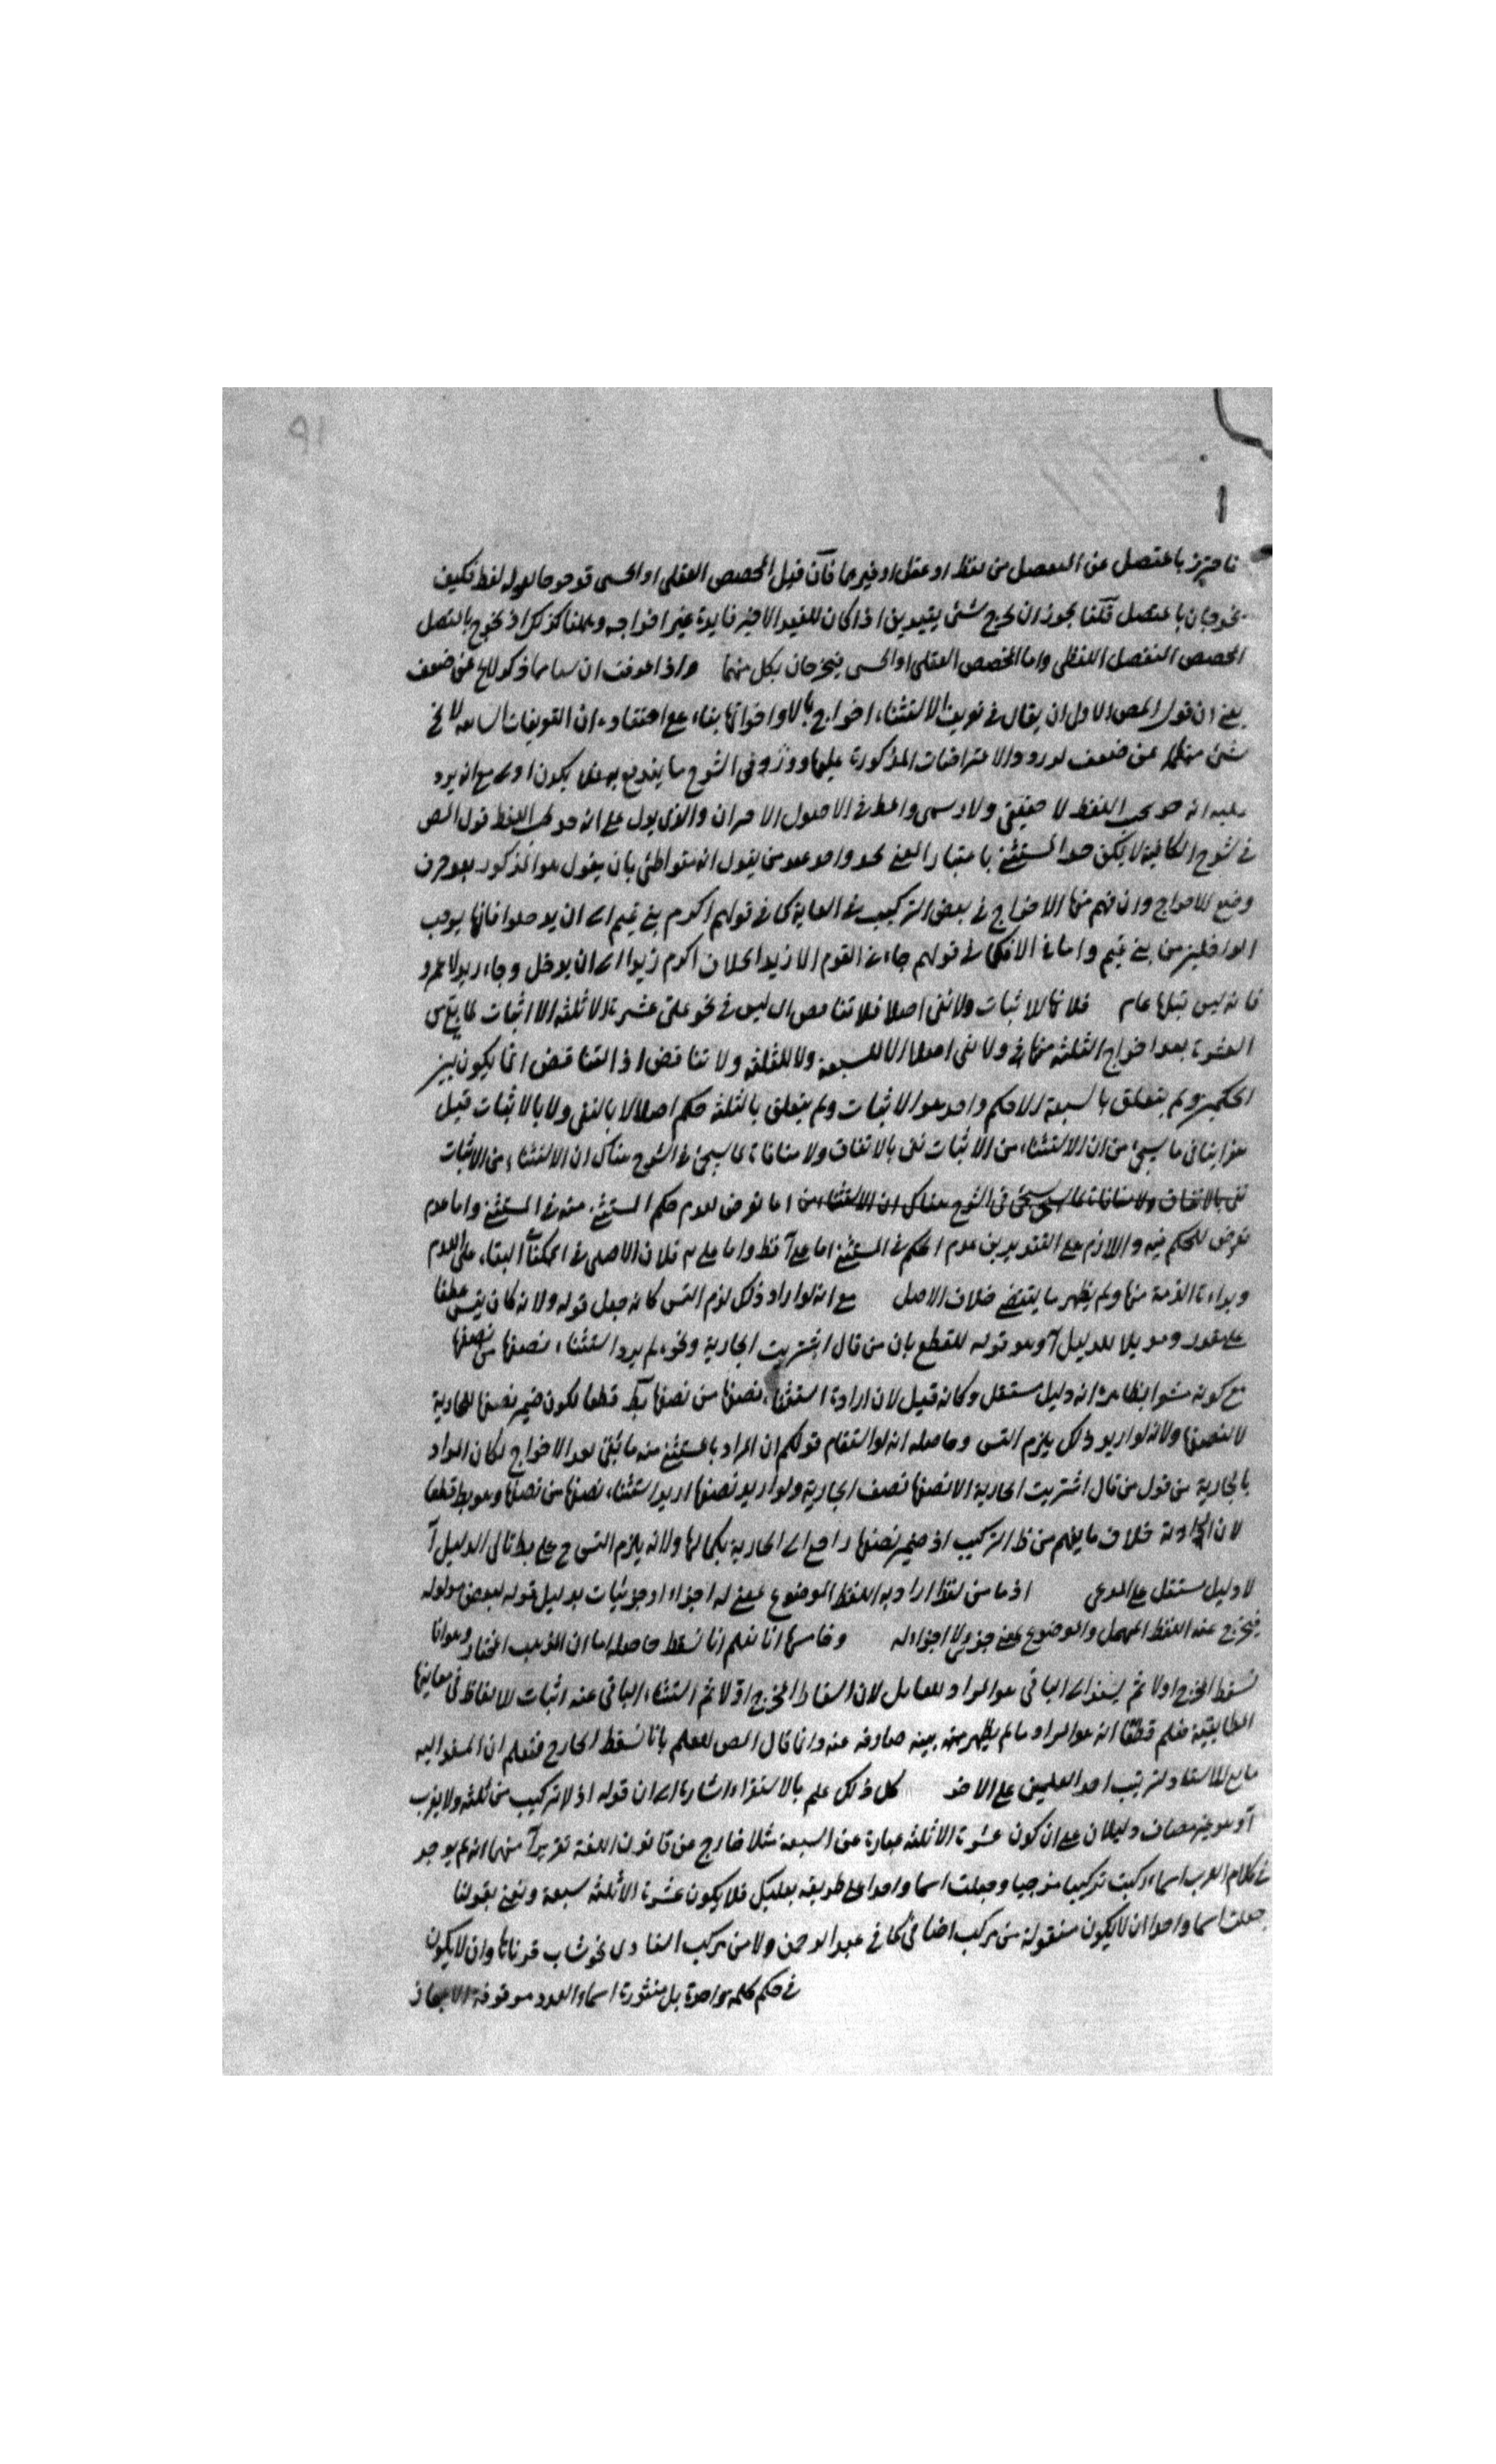 ٩١
فاحترز بالمتصل عن المنفصل من لفظ او عقل او غيرهما فان قيل المخصص العقلي او الحسي قد خرجا بقوله لفظ فكيف
يخرجان بالمتصل قلنا يجوز ان يخرج شئ بقيدين اذا كان للقيد الاخير فايدة غير اخراجه وههنا كذلك اذ يخرج بالمتصل
المخصص المنفصل اللفظي واما المخصص العقلي او الحسي فيخرجان بكل منهما واذا عرفت ان شيئا مما ذكر لا يخ عن ضعف
يعني ان قول المص الاولى ان يقال في تعريف الاستثناء اخراج بالا واخواتها بناء على اعتقاده ان التعريفات السابقة لا يخ
شئ منها عن ضعف لورود الاعتراضات المذكورة عليها وفي الشرح ما يندفع به يكون اولى مع انه يرد
عليه انه حد بحسب اللفظ لا حقيقي ولا رسمي في الاصول الامران والذي يدل على انه حد بحسب اللفظ قول المص
في شرح الكافية لا يمكن حد المستثنى باعتبار المعنى بحد واحد عند من يقول انه متواطئ بان يقول هو المذكور بعد حرف
وضع للاخراج وان فهم منها الاخراج في بعض التركيب في الغاية كما في قولهم اكرم بني تميم الى ان يدخلوا فانها يوجب
الداخلين من بني تميم واما في قولهم جاءني القوم الا زيدا بخلاف اكرم زيدا الى ان يدخل وجاء زيد لا عمرو
فانه ليس قبلها عام فلانها للاثبات ولا نفي اصلا فلا تناقض اي ليس في نحو علي عشرة الا ثلثة الا اثبات
العشرة بعد اخراج الثلثة منها ولا نفي اصلا لا للسبعة ولا للثلثة ولا تناقض اذ التناقض انما يكون بين
الحكمين ولم يتعلق بالسبعة الا حكم واحد هو الاثبات ولم يتعلق بالثلثة حكم اصلا لا بالنفي ولا بالاثبات قيل
هذا ينافي ما يجئ من ان الاستثناء من الاثبات نفي بالاتفاق ولا منافاة لما سيجئ في الشرح هناك ان الاستثناء من الاثبات
نفي بالاتفاق ولا منافاة لما سيجئ في الشرح هناك ان الاستثناء من اما تعرض لعدم حكم المستثنى منه في المستثنى واما عدم
تعرض للحكم فيه واللازم على التقديرين عدم الحكم في المستثنى اما على آ فظ واما على فلان الاصل في الممكنات البقاء على العدم
وبراءة الذمة منها ولم يظهر ما يقتضي خلاف الاصل مع انه لو اراد ذلك لزم التس كانه جعل قوله ولانه كان يتس عطفا
على مقدر للدليل آ وهو قوله للقطع بان من قال اشتريت الجارية ونحوه لم يرد استثناء نصفها من نصفها
مع كونه ظاهره انه دليل مستقل وكانه قيل لان ارادة استثناء نصفها من نصفها بط قطعا لكون ضمير نصفها للجارية
لا لنصفها ولانه لو اريد ذلك يلزم التس وحاصله انه لو استقام قولكم ان المراد بالمستثنى منه ما بقي بعد الاخراج لكان المراد
بالجارية من قول من قال اشتريت الجارية الا نصفها نصف الجارية ولو اريد نصفها اريد استثناء نصفها من نصفها وهو بط قطعا
لان خلاف ما يفهم من ظ التركيب اذ ضمير نصفها راجع الى الجارية بكمالها ولانه يلزم التس ح على بط تالي الدليل آ
لا دليل مستقل على المدعى اذ ما من لفظ اراد به اللفظ الموضوع لمعنى له اجزاء او جزئيات بدليل قوله لبعض مدلوله
فيخرج عنه اللفظ المهمل والموضوع لمعنى جزئي لا اجزاء له وخامسها انا نعلم انا نسقط حاصله اما ان المذهب المختار وهو انا
نسقط الخارج اولا ثم يسند الى الباقي هو المراد للعامل لان اسقاط المخرج اولا ثم استثناء الباقي عنه اثبات للالفاظ في معانيها
المطابقية فعلم قطعا انه هو المراد ما لم يظهر قرينة صارفة عنه وانما قال المص للعلم بانا نسقط الخارج فنعلم ان المسند اليه
ما بقي للاسناد لترتب احد العلمين على الاخر كل ذلك علم بالاستقراء اشارة الى ان قوله اذ لا تركيب من ثلثة ولا يعرب
آ وهو غير مضاف دليلان على ان كون عشرة الا ثلثة عبارة عن السبعة مثلا خارج عن قانون اللغة تقرير آ منهما انه لم يوجد
في كلام العرب اسماء ركبت تركيبا مزجيا وجعلت اسما واحدا على طريقه بعلبك فلا يكون عشرة الا ثلثة سبعة ونعني بقولنا
جعلت اسما واحدا ان لا يكون منقولة من مركب اضافي كما في عبد الرحمن ولا من مركب اسنادي نحو شاب قرناها وان لا يكون
في حكم كلمة واحدة بل منثورة اسماء العدد موقوفة الاعجاز